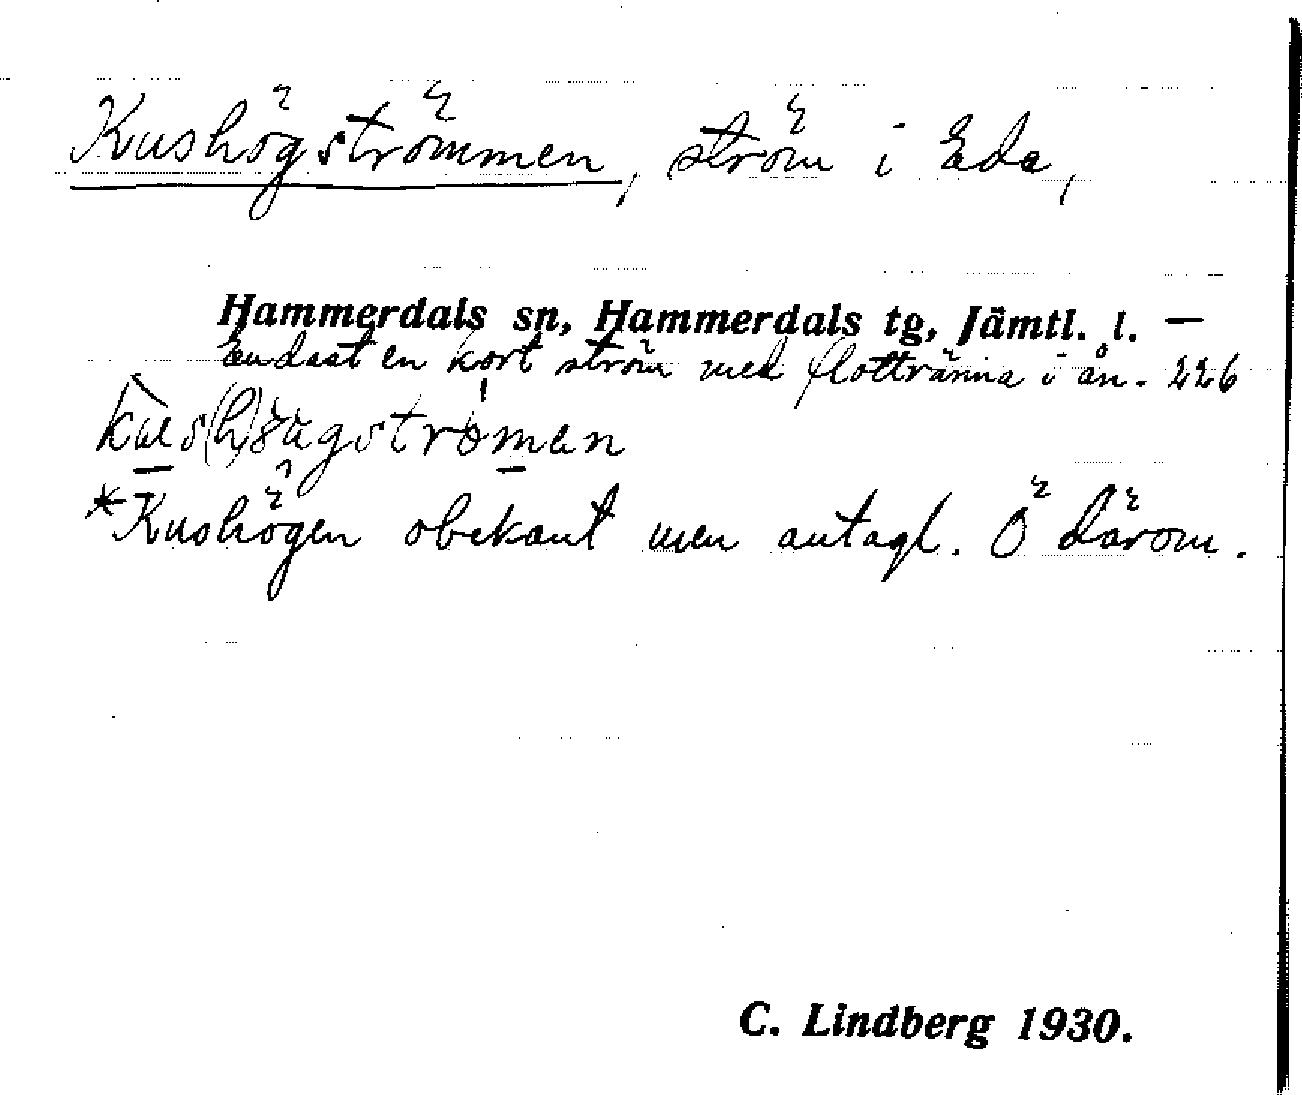 Kushögströmmen, ström i Eda,
Hammerdals sn, Hammerdals tg, Jämtl. l. —
Endast en kort ström med flottränna i ån. 226
*Kushögen obekant men antagl. Ö därom.
C. Lindberg 1930.